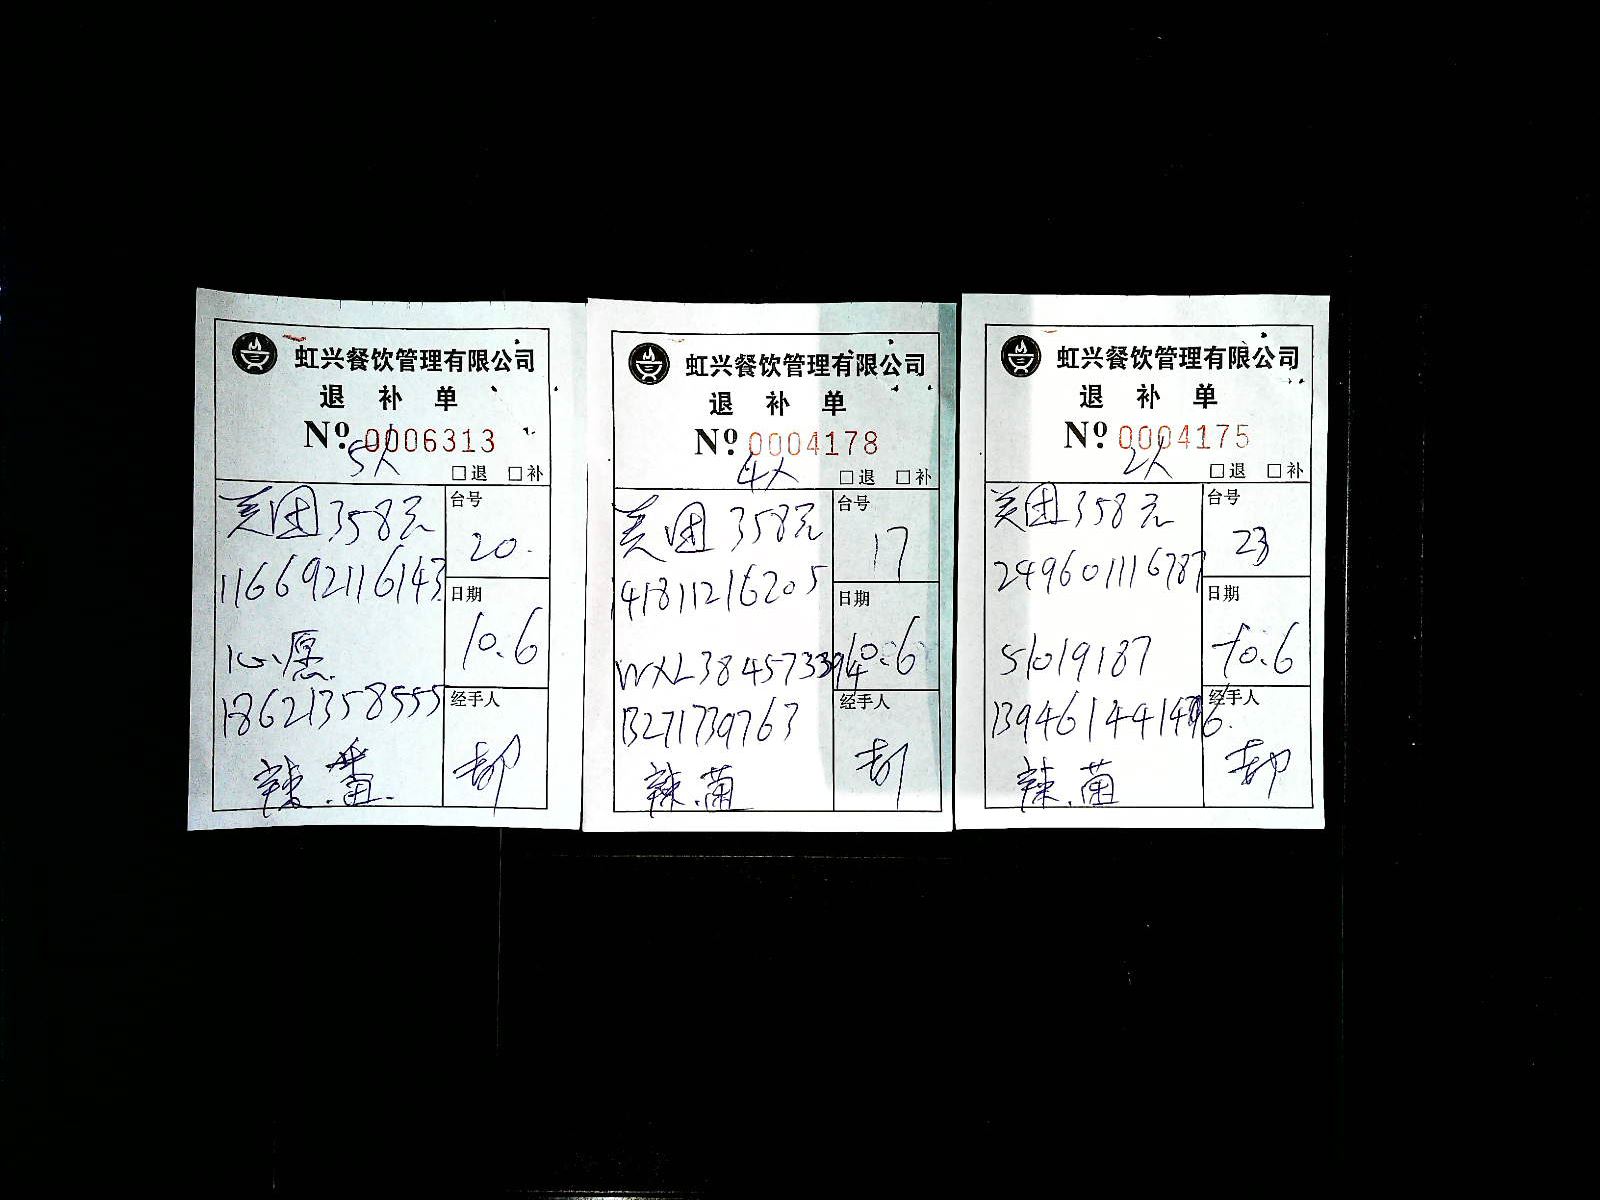 虹兴餐饮管理有限公司
退 补 单
Nº.0006313
5人
□退 □补
美团358元
116692116143
心愿
18621358555
辣.番.
台号
20.
日期
10.6
经手人
虹兴餐饮管理有限公司
退 补 单
Nº.0004178
4人
□退 □补
美团358元
141811216205
WXL3845733914
13271739763
辣.菌
台号
17
日期
10.6
经手人
虹兴餐饮管理有限公司
退 补 单
Nº.0004175
2人
□退 □补
美团358元
249601116787
51019187
辣.菌
台号
23
日期
10.6
经手人